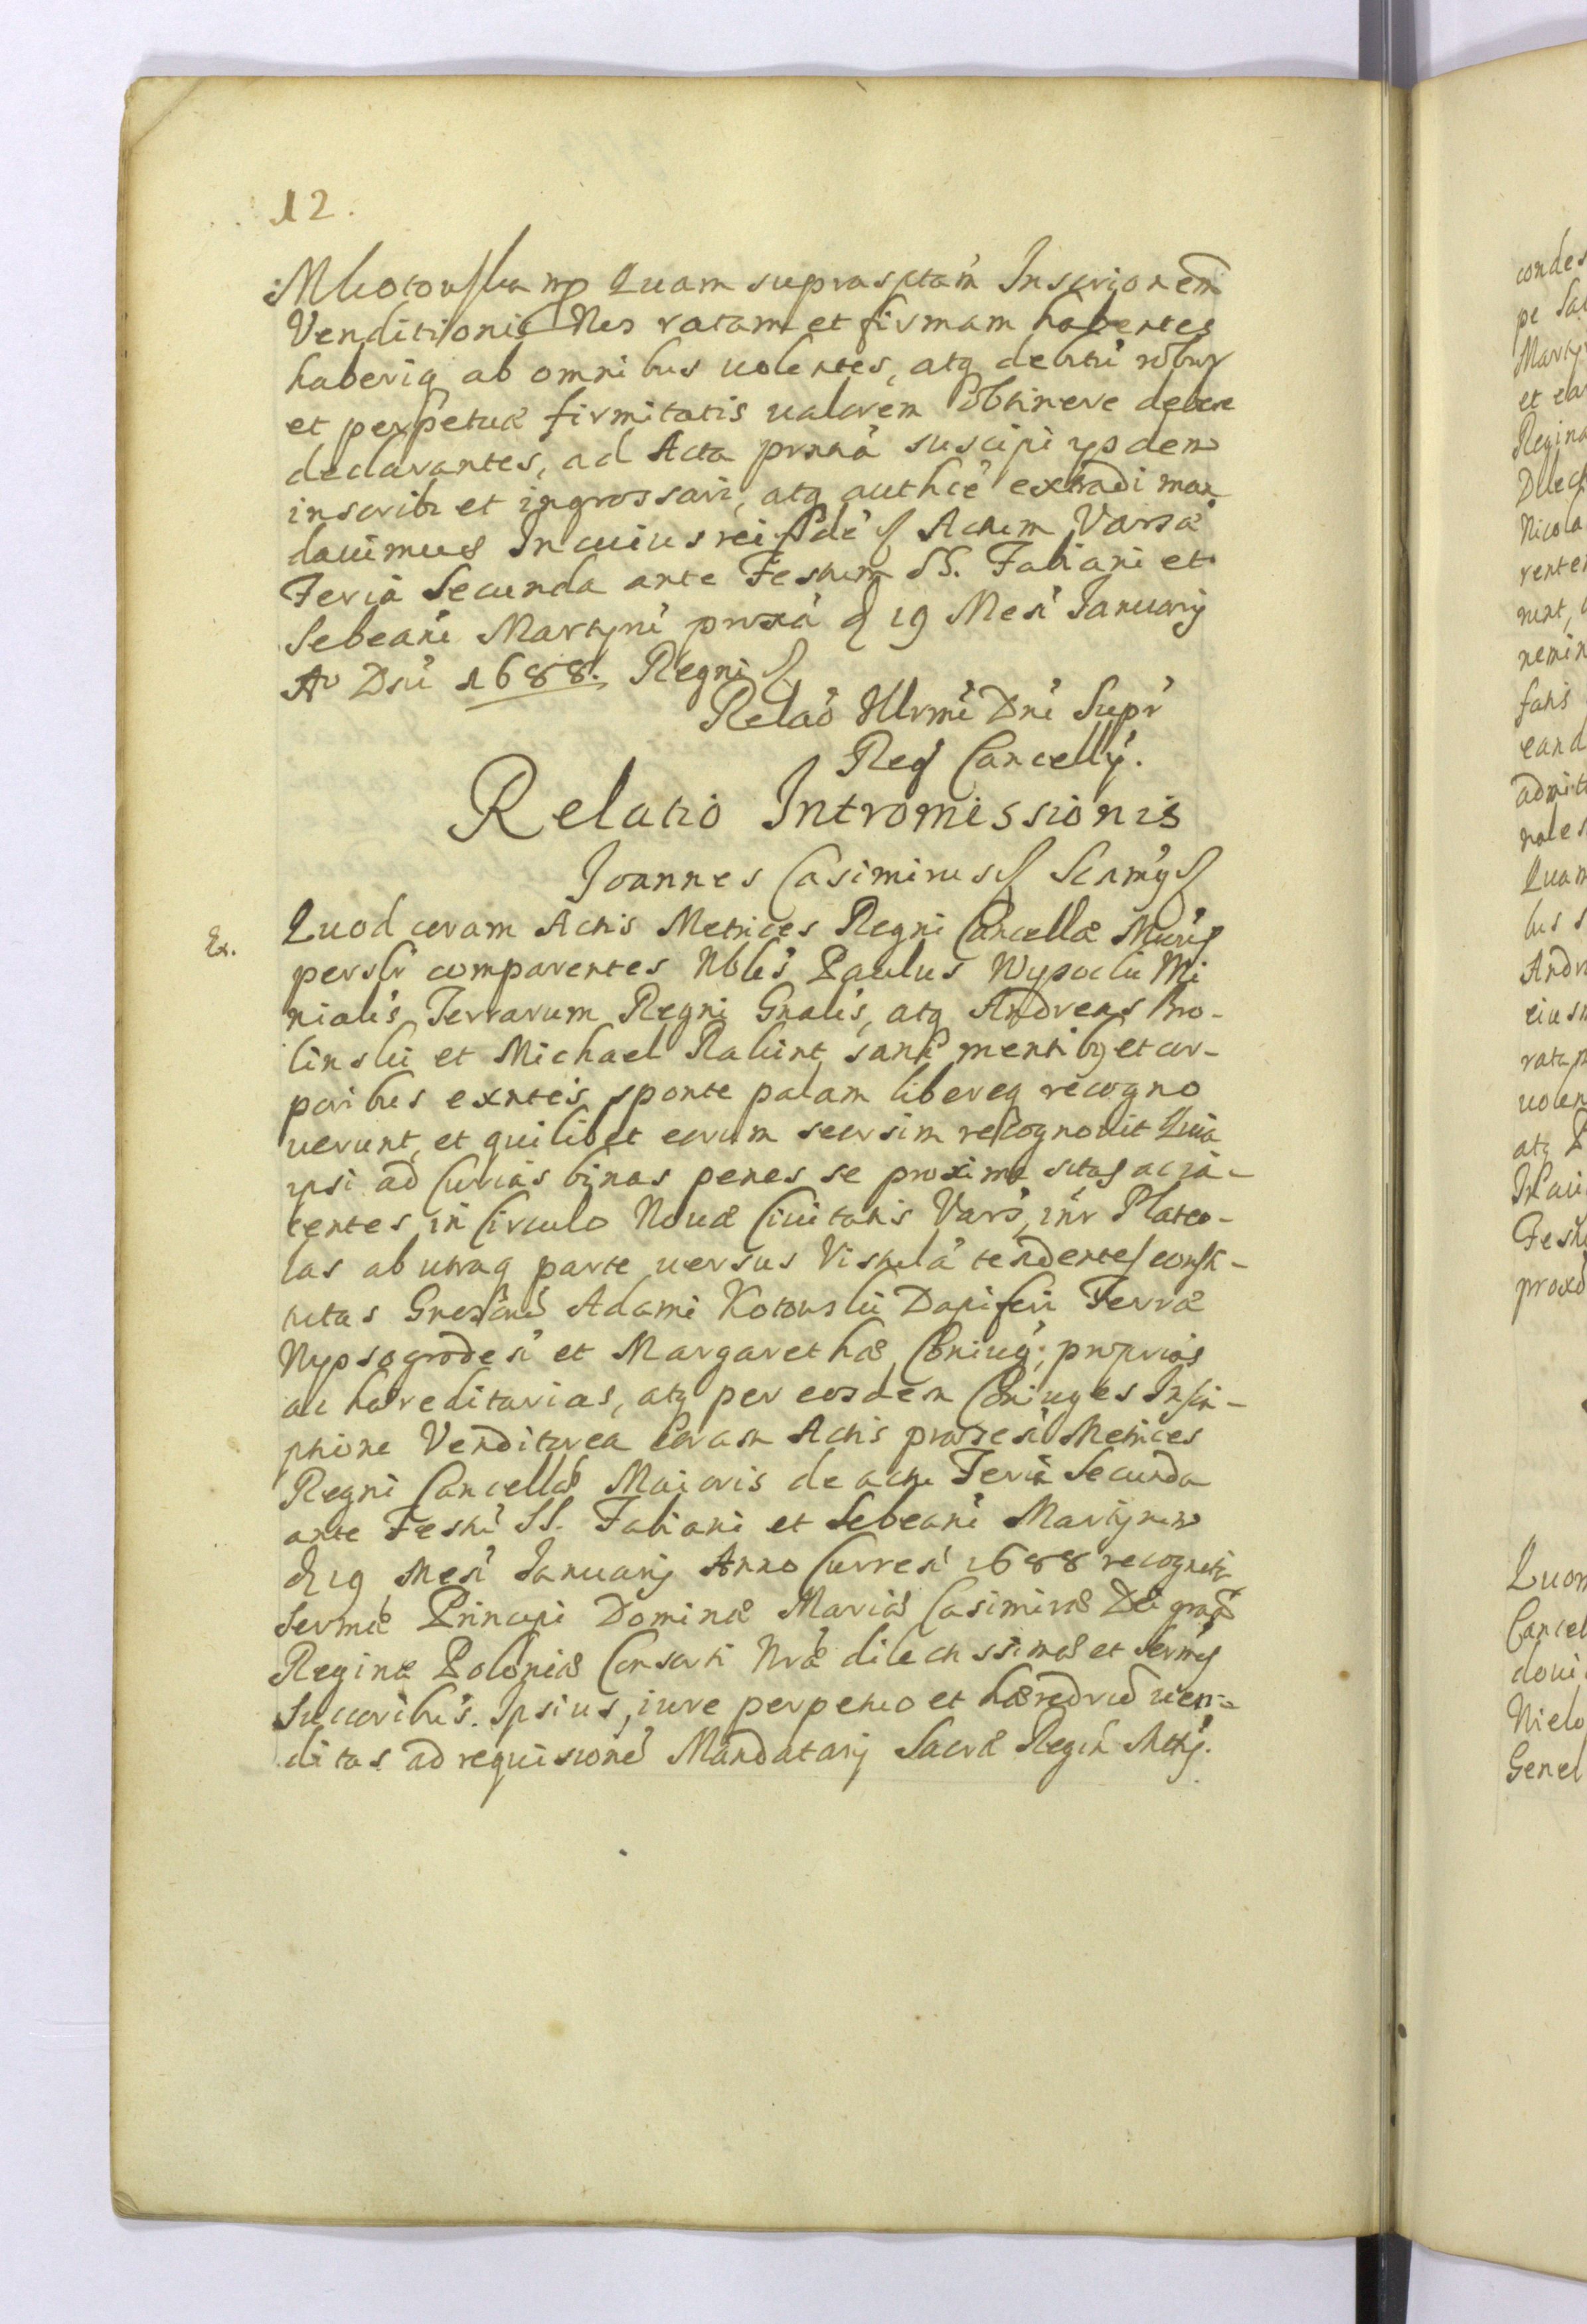 12.
MKotowska mp Quam suprasctam Inscrionem
Venditionis Nos ratam et firmam habentes
haberiq ab omnibus uolentes, atq debitu robur
et perpetuæ firmitatis ualorem obtinere debere
declarantes, ad Acta prnta suscipi ysdem
inscribi et ingrossari, atq authce extradi man
dauimus In cuius rei fide Actum Varsa
Feria Secunda ante Festum SS. Fabiani et
Sebeani Martyru proxa d 19 Mesi Ianuarij
Ao Dni 1688. Regni
Relao Illrmi Dni Supr
Reg Cancellÿ.
Relatio Intromissionis
Joannes Casimirus Scrmÿ
Ex. Quod coram Actis Metrices Regni Cancellæ Maris
persltr comparentes Nbles Paulus Wysocki Mi
nialis Terrarum Regni Gnalis, atq Andreas Bro-
linski et Michael Rabint sani mentibq et cor-
poribus exntes, sponte palam libereq recogno
uerunt, et quilibet eorum seorsim recognouit Quia
ipsi ad Curias binas penes se proxime sitas ac ja-
centes in Circulo Nouæ Ciuitatis Vars, intr Plateo-
las ab utraq parte uersus Vistula tendentes consti-
tutas Gnesorus Adami Kotowski Dapiferi Terræ
Wyssogrodesi et Margarethæ Coniugu, proprias
ac hæreditarias, atq per eosdem Coniuges Inscri-
ptione Venditorea Coram Actis prosresi Metrices
Regni Cancellæ Maioris de actu Feria Secunda
ante Festu SS. Fabiani et Sebeani Martyrum
d 19 Mesi Ianuarij Anno Curresi 1688 recognita
Sermæ Principi Dominæ Mariæ Casimiræ Dei gratia
Reginæ Poloniæ Consorti Nræ dilectissimæ et Sermis
Succoribus. Ipsius, iure perpetuo et hæredrio uen-
ditas ad requisicione Mandatarij Sacræ Regin Mttis.